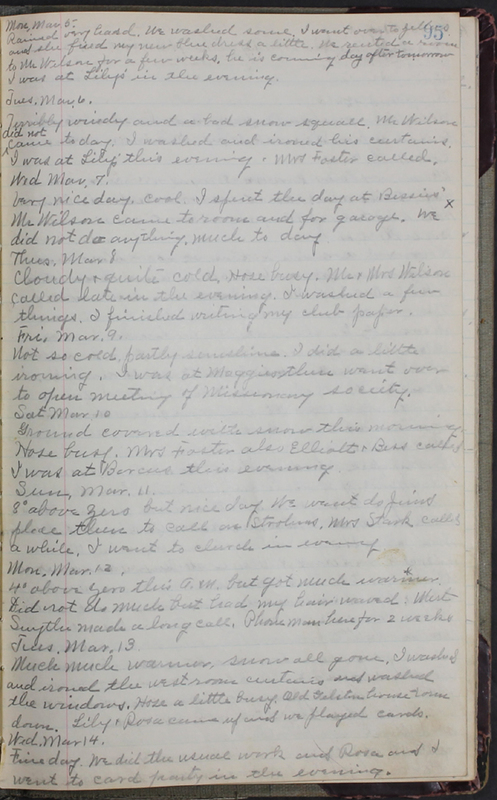 95
Mon, Mar 5.
Rained very hard. We washed some, I went over to
and she fixed my new blue dress a little. We rented a room
to Mr Wilson for a few weeks, he is coming day after tomorrow
I was at Lily's in the evening.
Tues. Mar 6.
Terribly windy and a bad snow squall. Mr Wilson
did not
came today. I washed and ironed his curtains.
I was at Lily this evening. Mrs Foster called.
Wed Mar. 7.
Very nice day. cool. I spent the day at Bessies x
Mr Wilson came to room and for garage. We
did not do anything much to day
Thurs. Mar 8
Cloudy + quite cold. Hose busy. Mr + Mrs Wilson
called late in the evening. I washed a few
things. I finished writing my club paper.
Fri, Mar. 9.
Not so cold, partly sunshine. I did a little
ironing. I was at Maggies then went over
to open meeting of Missionary society.
Sat Mar. 10
Ground covered with snow this morning
Hose busy. Mrs Foster also Elliott + Bess called
I was at this evening
Sun, Mar. 11.
8° above zero but nice day. We went to
place then to call on Mrs Stark called
a while. I went to church in evening
Mon. Mar. 12.
4° above zero this A.M. but got much warmer.
Did not do much but had my hair waved.
Smythe made a long call. Phone man here for 2 weeks
Tues, Mar. 13
Much much warmer, snow all gone. I washed
and ironed the west room curtains and washed
the windows. Hose a little busy. Old house torn
down. Lily + Rosa came up and we played cards.
Wed. Mar 14.
Fine day. We did the usual work and Rosa and I
went to card party in the evening.